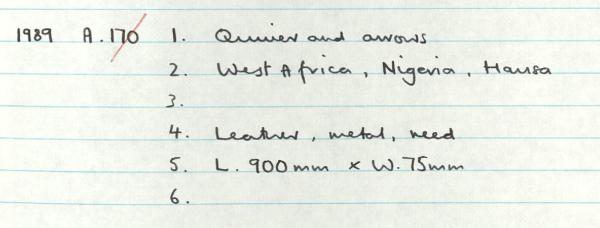 1989 A.170 1. Quiver and arrows
2. West Africa, Nigeria, Hausa
3.
4. Leather, metal, reed
5. L. 900mm x W. 75mm
6.